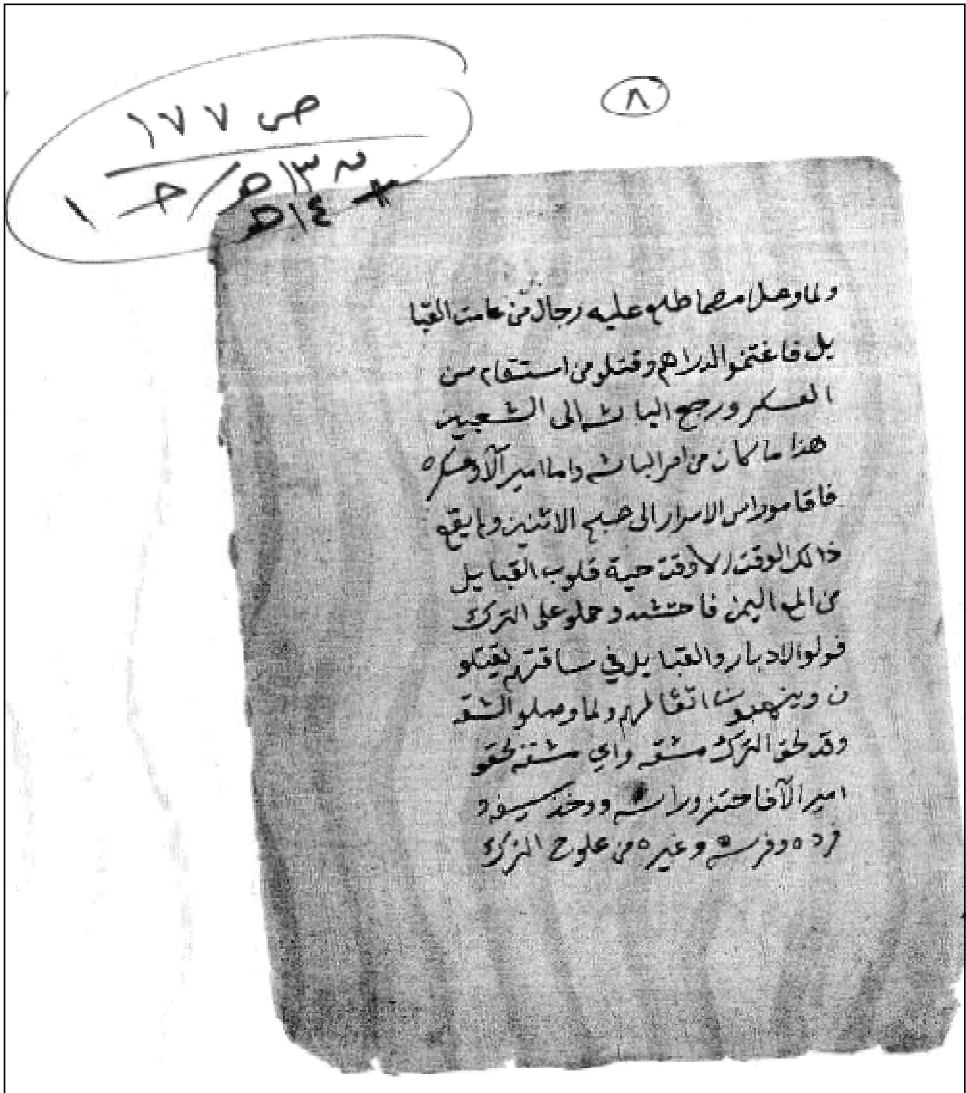 ٨
ص ١٧٧
ق ١٣هـ / حـ ١
١٤هـ
ولما وصل مصما طلع عليه رجال من عامت القبا
يل فاغتنمو الدراهم وقتلو من استقام من
العسكر ورجع الباشه الى الشعبين
هذا ما كان من امر الباشه واما امير آلاد وعسكره
فاقامو راس الاسرار الى صبح الاثنين ولم يقع
ذالك الوقت الا وقت حية قلوب القبايل
من المع اليمن فاحتشد وحملو على الترك
فولو الادبار والقبايل في ساقتهم يقتلو
ن وينهبون اثقالهم ولما وصلو الشقه
وقد لحق الترك مشقه واي مشقه لحقو
امير آلا فاحتزو راسه ووخذ سيفه و
فرده وفرسه وغيره من علوج الترك